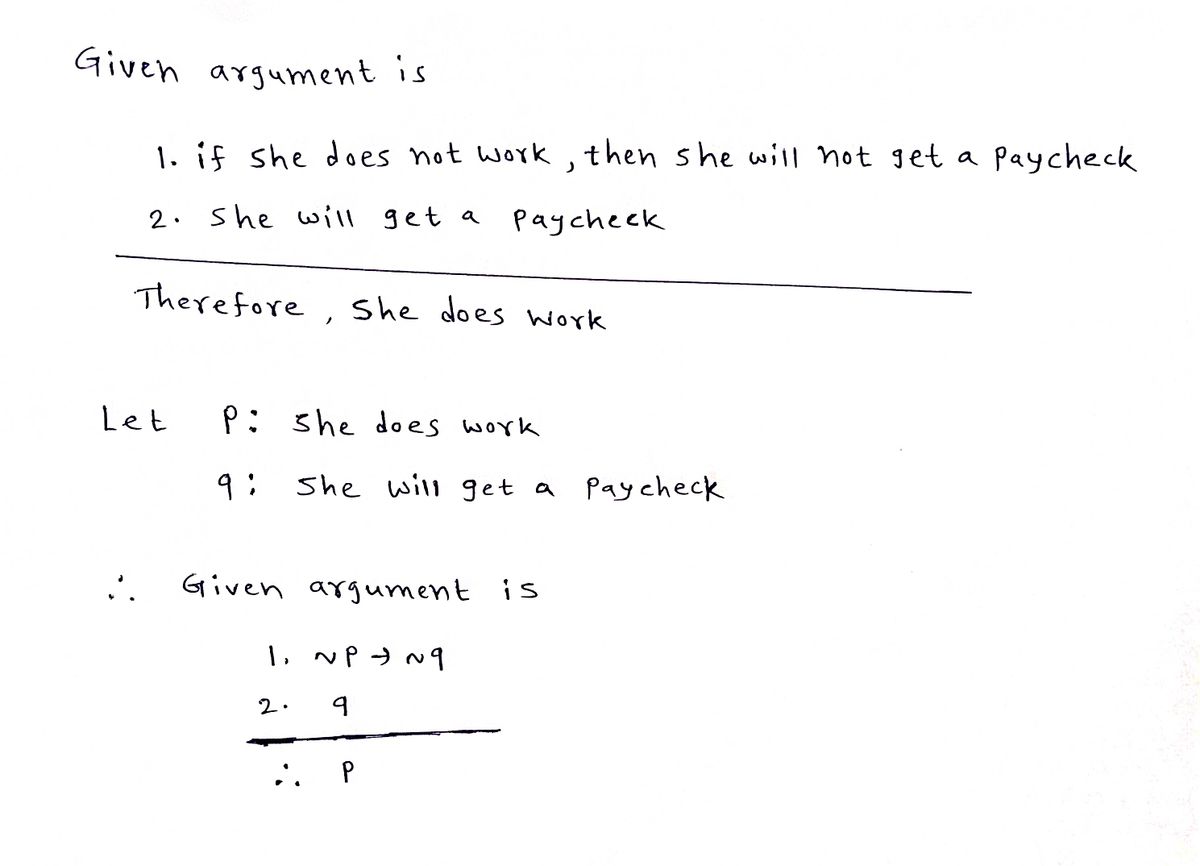 Given argument is
1. if she does not work, then she will not get a paycheck
2. She will get a paycheck
Therefore, She does work
Let P: She does work
q: She will get a paycheck
∴ Given argument is
1. ~P → ~q
2. q
∴ P